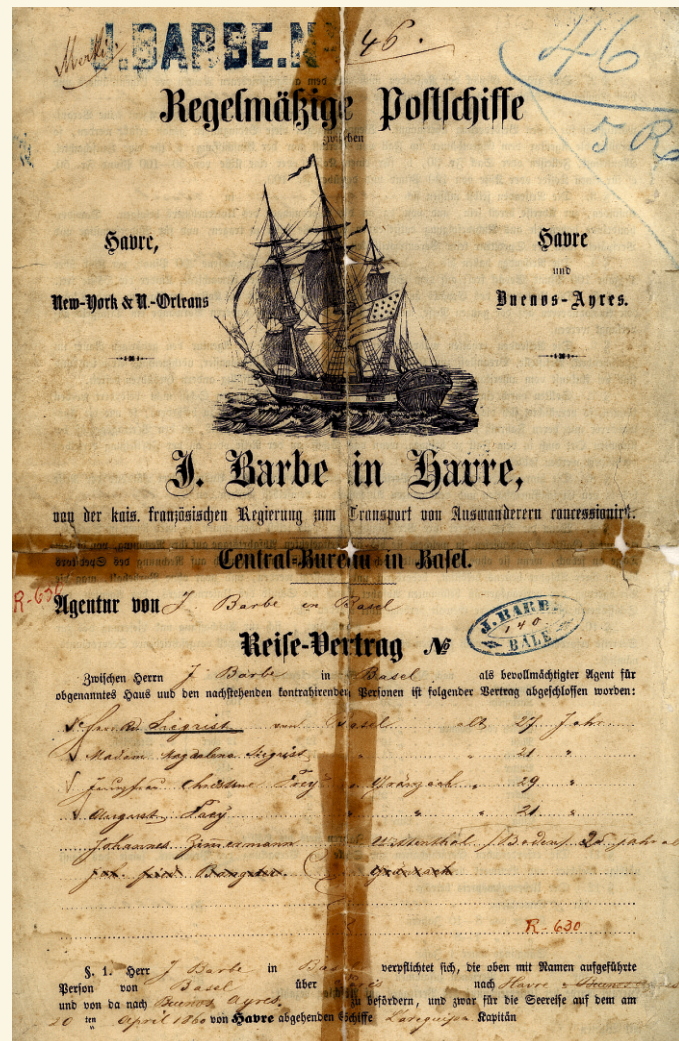 J. BARBE. N° 46.
46
5 R
Regelmäßige Postschiffe
zwischen
Havre,
New-York & N.-Orleans
Havre
und
Buenos-Ayres.
J. Barbe in Havre,
von der kais. französischen Regierung zum Transport von Auswanderern concessionirt.
Central-Bureau in Basel.
R-630
Agentur von J. Barbe in Basel
Reise-Vertrag №
J. BARBE
140
BALE
Zwischen Herrn J Barbe in Basel als bevollmächtigter Agent für
obgenanntes Haus und den nachstehenden kontrahirenden Personen ist folgender Vertrag abgeschlossen worden:
Siegrist von Basel alt 27 Jahr
Madam Magdalena Siegrist " " 21 "
Jungfrau Christine Frey " Gränzach " 29 "
August Frey " " " 21 "
Johannes Zimmermann (Baden) 25 Jahr alt
Gränzach
R-630
§. 1. Herr J Barbe in Basel verpflichtet sich, die oben mit Namen aufgeführte
Person von Basel über Paris nach Havre
und von da nach Buenos Ayres. zu befördern, und zwar für die Seereise auf dem am
20 ten April 1860 von Havre abgehenden Schiffe Kapitän